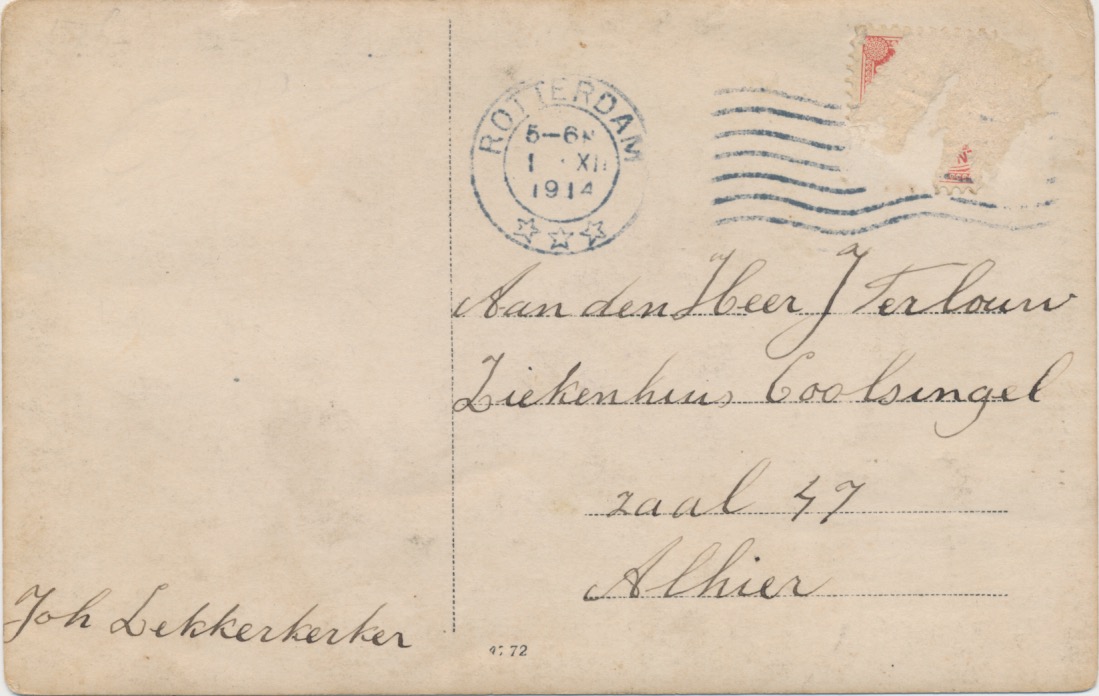 ROTTERDAM
5-6N
1 XII
1914
Aan den Heer J Terlouw
Ziekenhuis Coolsingel
zaal 47
Alhier
Joh Lekkerkerker
72